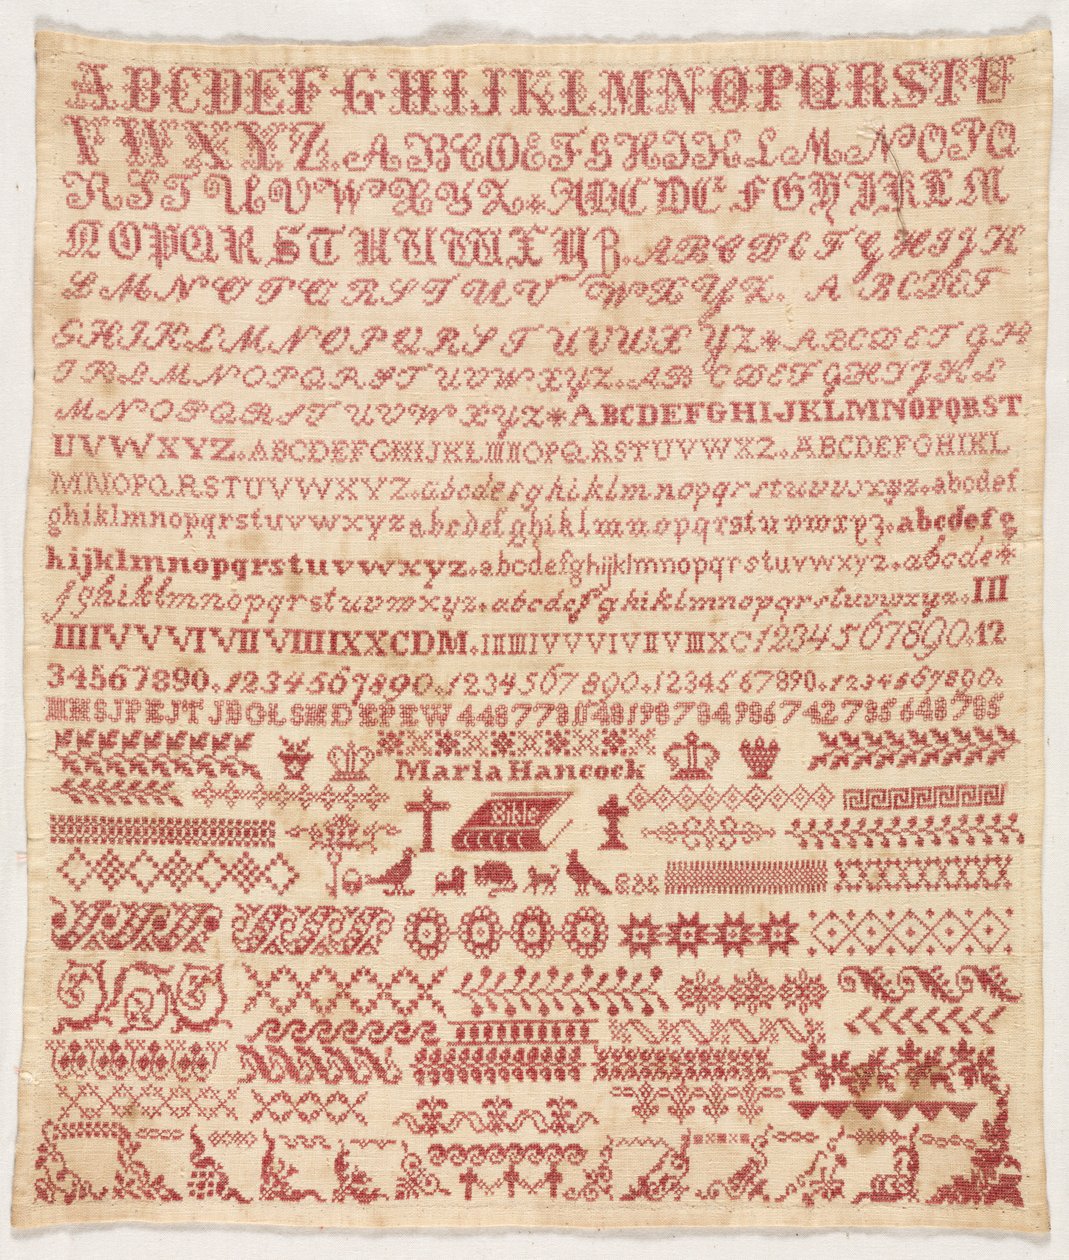 ABCDEFGHIJKLMNOPQRSTU
VWXYZ. ABCDEFGHIKLMNOPQ
RSTUVWXYZ*ABCDE FGHIJKLM
NOPQRSTUVWXYZ. ABCDEFGHIJK
LMNOPQRSTUV WXYZ. ABCDEF
GHIKLMNOPQRSTUVWXYZ*ABCDEFGH
IKLMNOPQRSTUVWXYZ. ABCDEFGHIJKL
MNOPQRSTUVWXYZ*ABCDEFGHIJKLMNOPQRST
UVWXYZ. ABCDEFGHIJKLMNOPQRSTUVWXZ. ABCDEFGHIKL
MNOPQRSTUVWXYZ. abcdefghiklmnopqrstuvwxyz. abcdef
ghiklmnopqrstuvwxyz abcdefghiklmnopqrstuvwxyz. abcdefg
hijklmnopqrstuvwxyz. abcdefghijklmnopqrstuvwxyz. abcde*
fghiklmnopqrstuvwxyz. abcdefghiklmnopqrstuvwxyz. III
IIIIVVVIVIIVIIIIXXCDM. IIIIIIVVVIVIIVIIIXC1234567890. 12
34567890. 1234567890. 1234567 890. 1234567890. 1234567890.
Maria Hancock
Bible